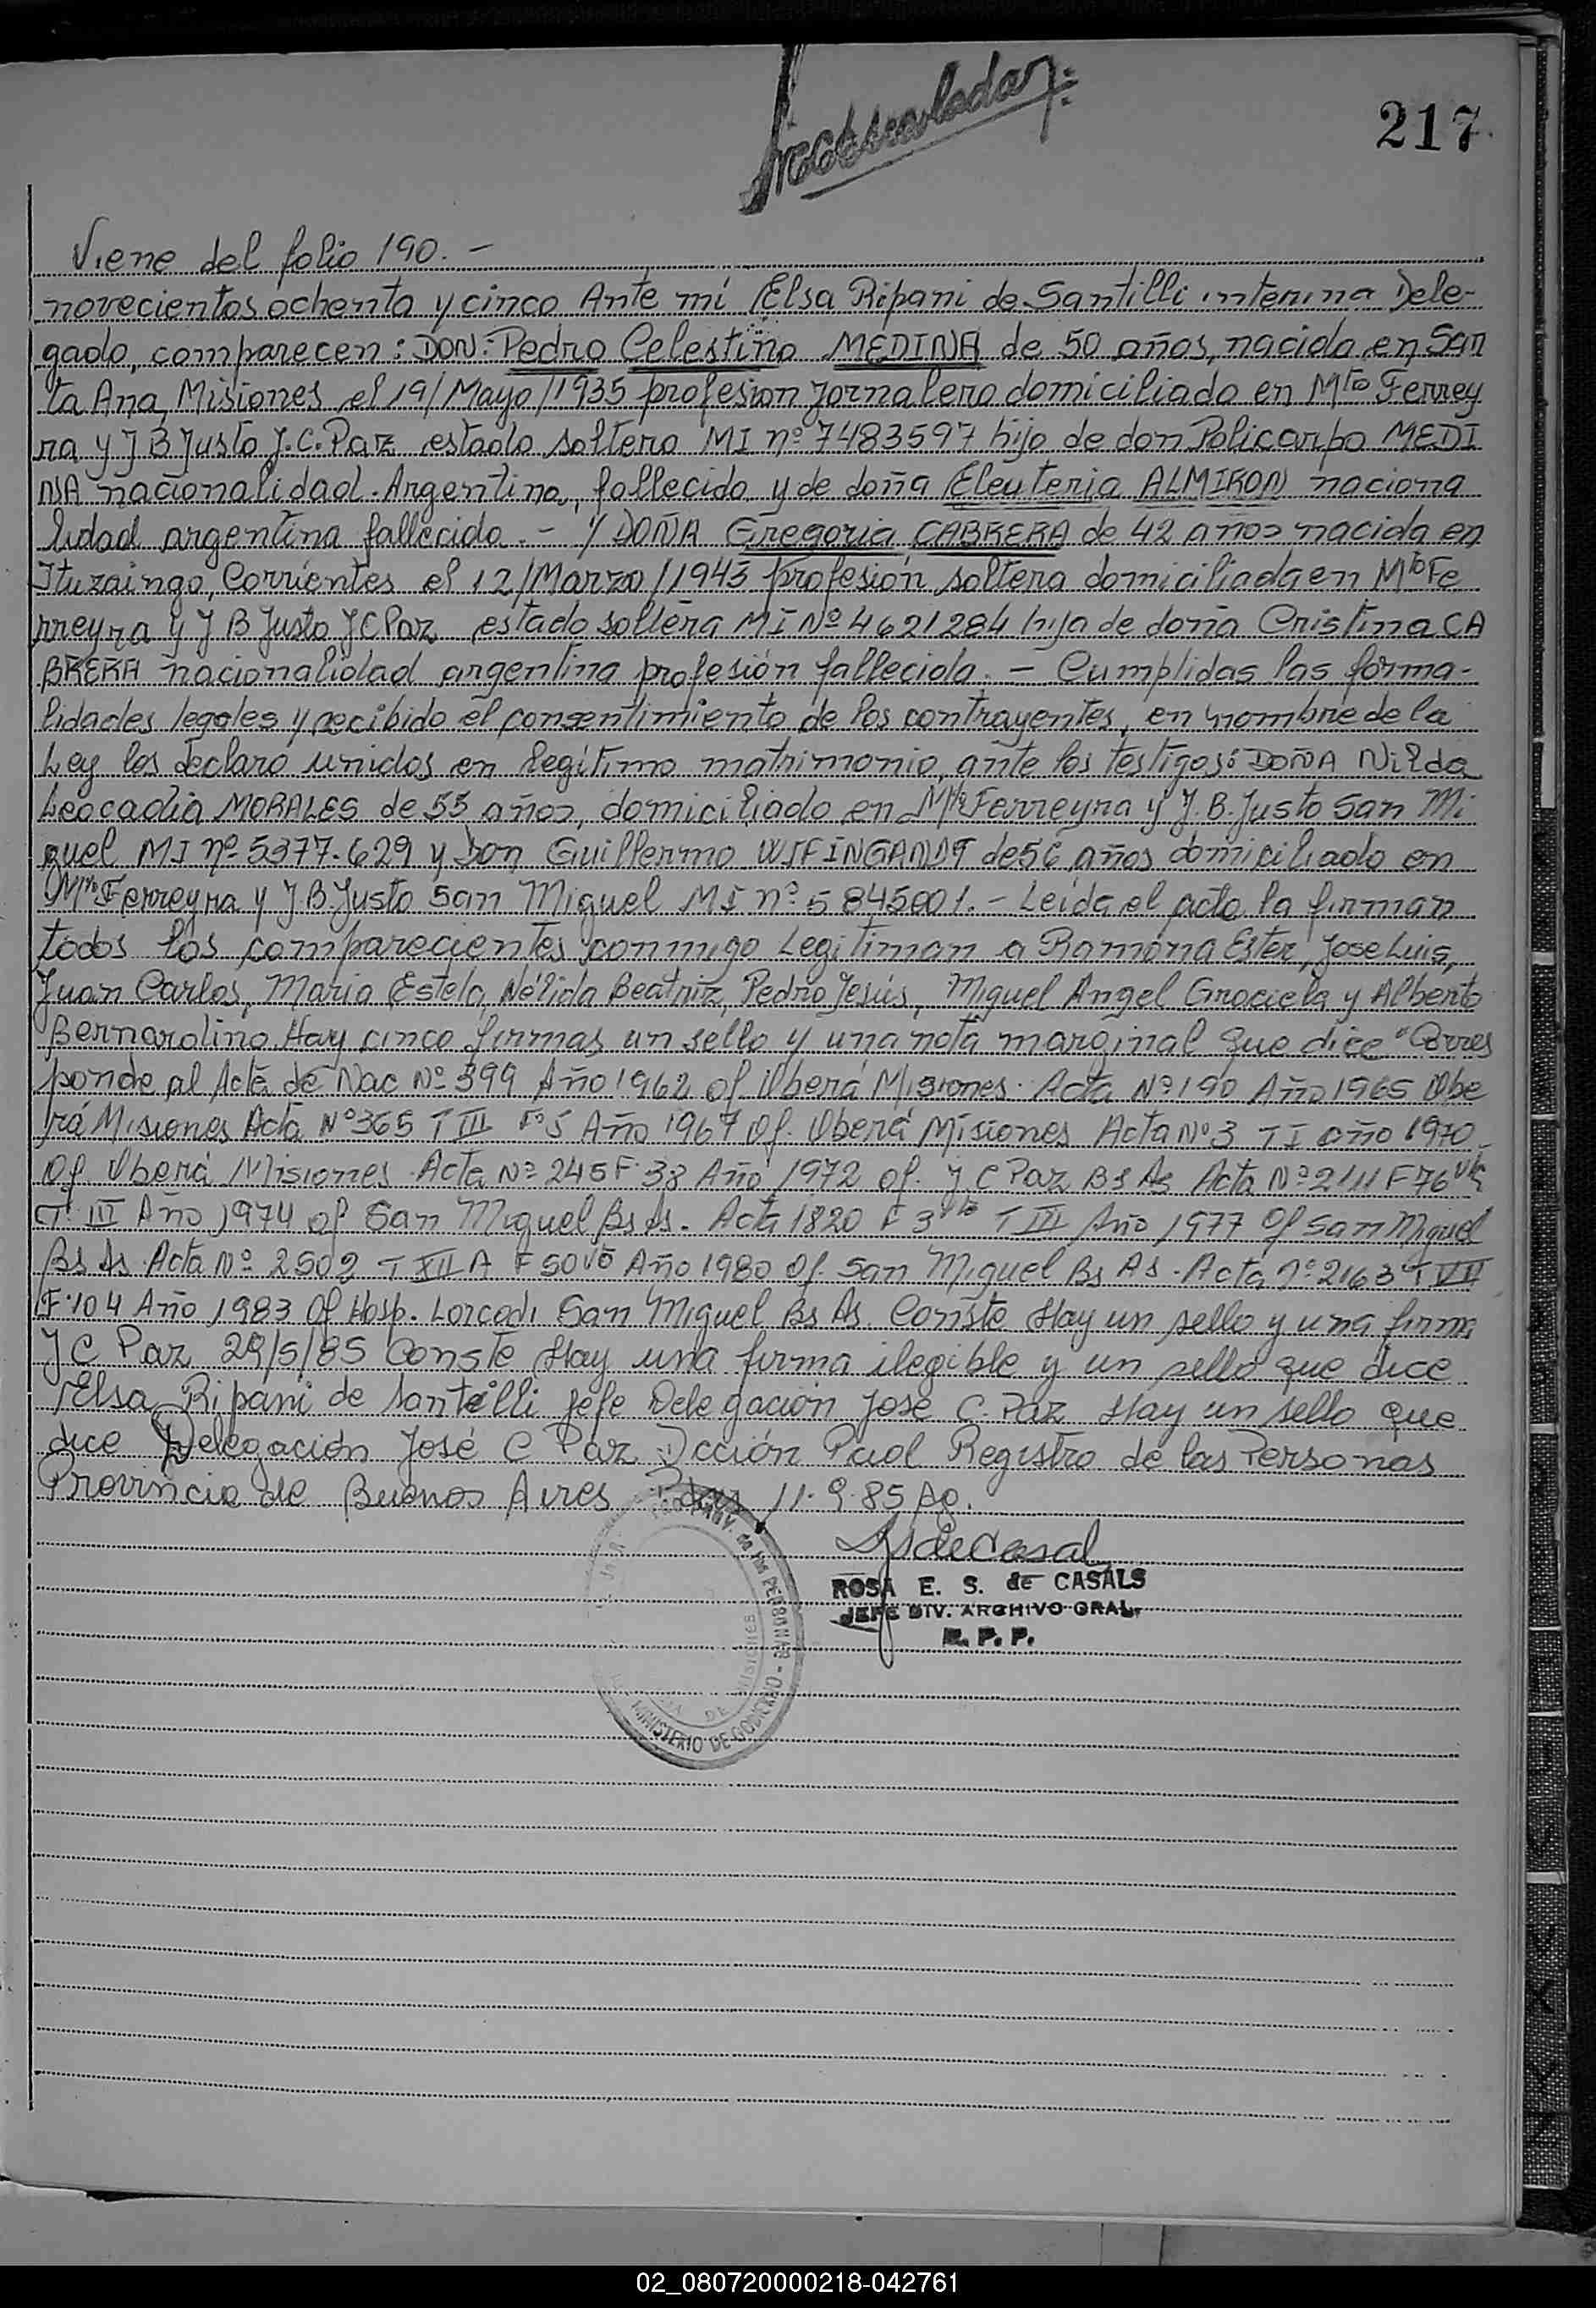 217
Viene del folio 190. -
novecientos ochenta y cinco Ante mí Elsa Ripani de Santilli interina Dele-
gado, comparecen: DON: Pedro Celestino MEDINA de 50 años, nacido en San
ta Ana, Misiones el 19/Mayo/1935 profesion jornalero domiciliado en Mtro Ferrey
ra y J B Justo J.C. Paz estado soltero MI nº 7483597 hijo de don Policarpo MEDI
NA nacionalidad Argentina, fallecido y de doña Eleuteria ALMIRON naciona
lidad argentina fallecida. - y DOÑA Gregoria CABRERA de 42 años nacida en
Ituzaingo, Corrientes el 12/Marzo/1943 profesión soltera domiciliada en Mtro Fe
rreyra y J B Justo J C Paz estado soltera MI Nº 4621284 hija de doña Cristina CA
BRERA nacionalidad argentina profesión fallecida. - Cumplidas las forma-
lidades legales y recibido el consentimiento de los contrayentes, en nombre de la
Ley los declaro unidos en legítimo matrimonio, ante los testigos: DOÑA Nilda
Leocadia MORALES de 55 años, domiciliado en Mtro Ferreyra y J. B. Justo San Mi
guel MI nº 5377.629 y Don Guillermo de 56 años domiciliado en
Mtro Ferreyra y J B. Justo San Miguel MI nº 5845001. - Leída el acta la firman
todos los comparecientes conmigo Legitiman a Ramona Ester, Jose Luis,
Juan Carlos, Maria Estela, Nélida Beatriz, Pedro Jesús, Miguel Angel Graciela y Alberto
Bernardino Hay cinco firmas un sello y una nota marginal que dice "Corres
ponde al Acta de Nac Nº 399 Año 1962 of Oberá Misiones. Acta Nº 190 Año 1965 Obe
rá Misiones Acta Nº 365 T III Fº 5 Año 1967 Of. Oberá Misiones Acta Nº 3 T I año 1970
Of Oberá Misiones Acta Nº 245 F 38 Año 1972 of. J C Paz Bs As Acta Nº 2111 F 76 vta
T III Año 1974 of San Miguel Bs As. Acta 1820 F 3 vta T III Año 1977 Of San Miguel
Bs As Acta Nº 2502 T XII A F 50 vto Año 1980 Of. San Miguel Bs As. Acta Nº 2163 T VII
F. 104 Año 1983 Of Hosp. San Miguel Bs As. Conste Hay un sello y una firma
J C Paz 29/5/85 Conste Hay una firma ilegible y un sello que dice
Elsa Ripani de Santilli Jefe Delegación José C. Paz Hay un sello que
dice Delegación José C Paz Dcción Pcial Registro de las Personas
Provincia de Buenos Aires 11.9.85
ROSA E. S. de CASALS
JEFE DIV. ARCHIVO GRAL.
R. P. P.
PROV. de las PERSONAS - MINISTERIO DE GOBIERNO
DE MISIONES
02_080720000218-042761